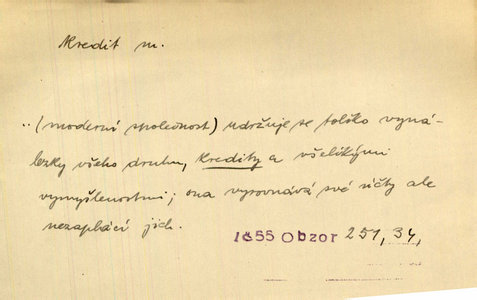 Kredit m.
..(moderní společnost) udržuje se tolıko vyná-
lezky všeho druhu, kredity a všelikými
vymyšlenostmi; ona vyrovnává své účty ale
nezaplácí jich.
1855 Obzor 251, 34,